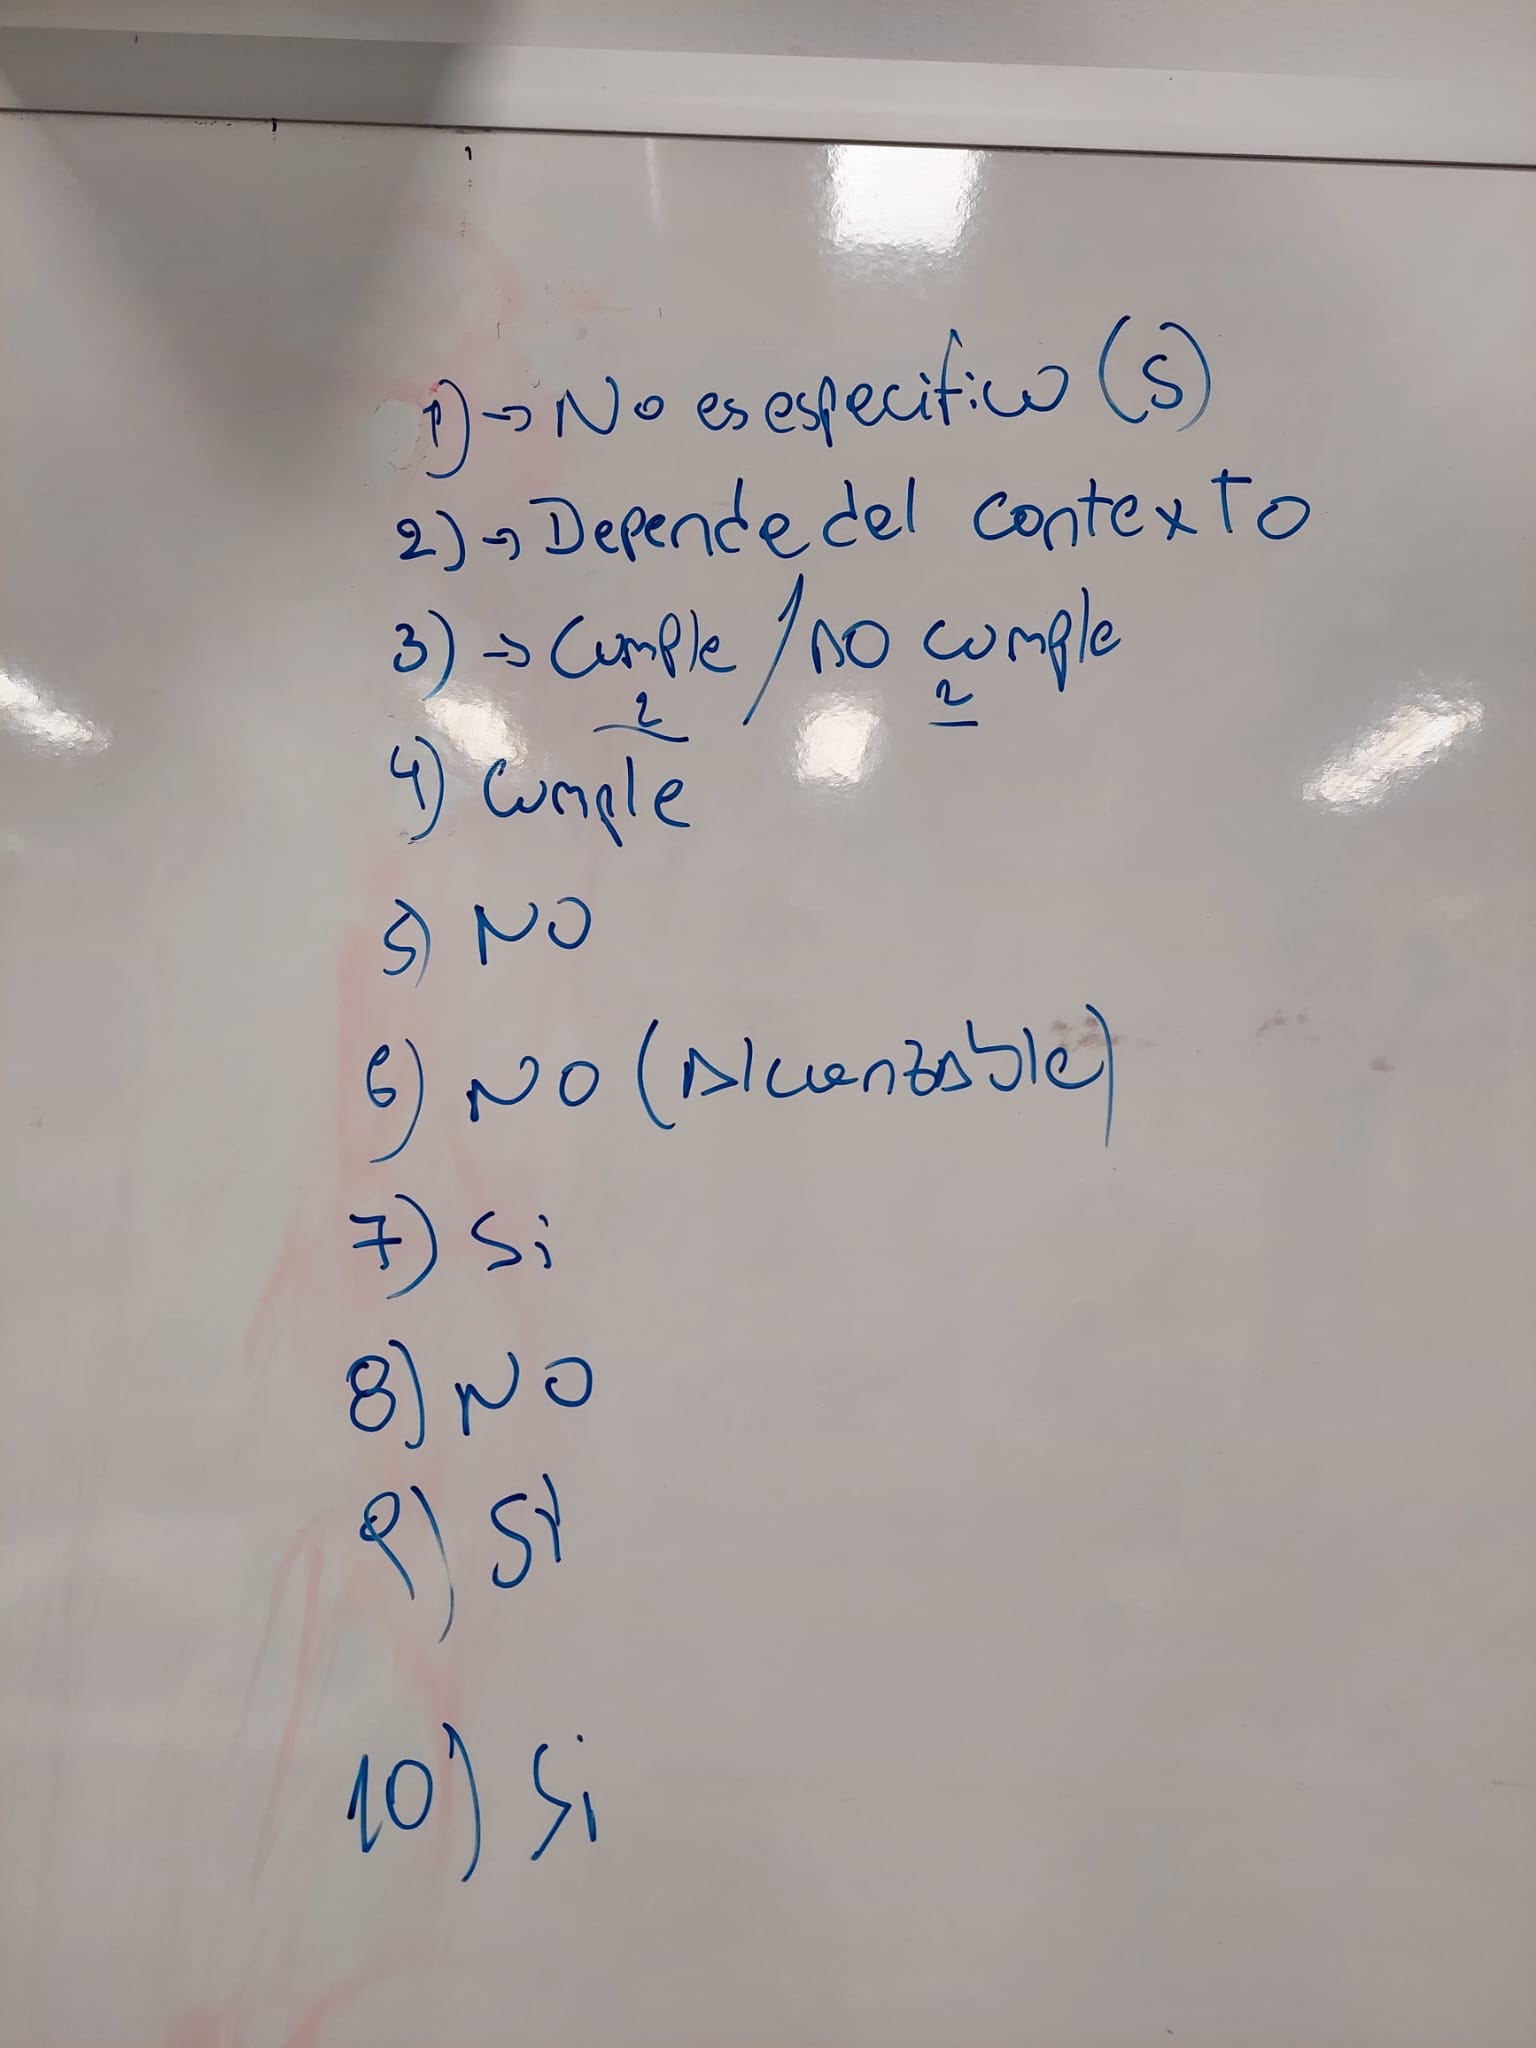 1) → No es especifico (S)
2) → Depende del contexto
3) → Cumple / NO cumple
2 2
4) Cumple
5) NO
6) NO (Alcanzable)
7) Si
8) NO
9) SI
10) Si